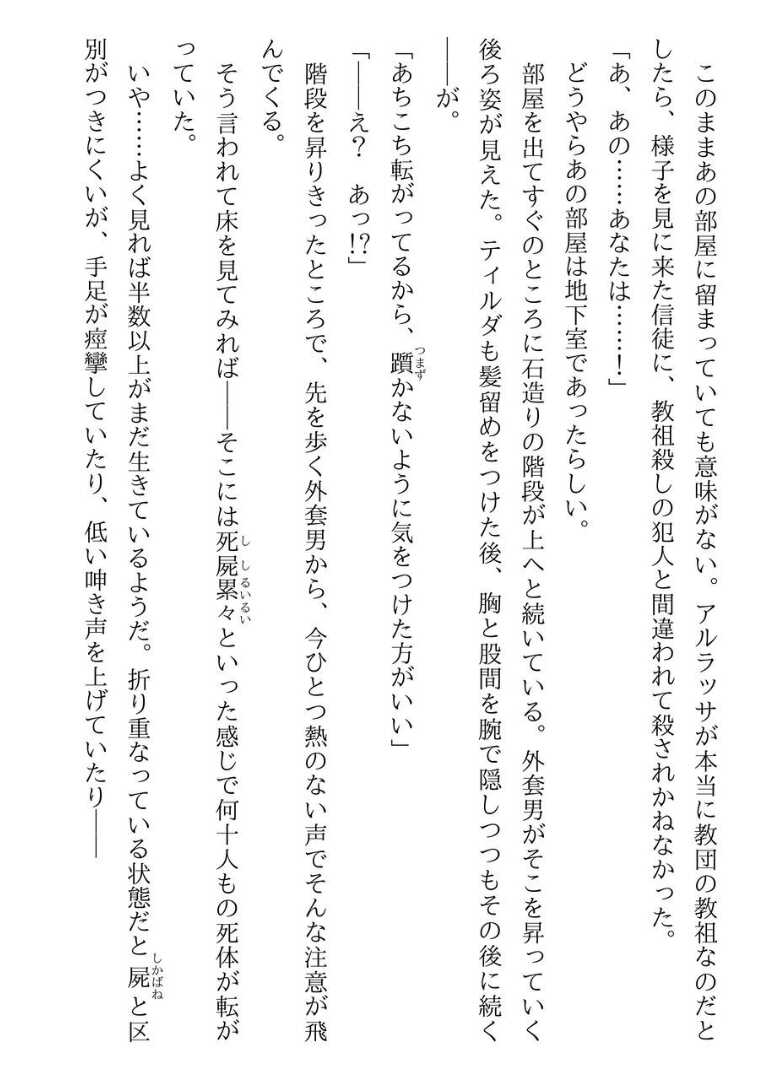 このままあの部屋に留まっていても意味がない。アルラッサが本当に教団の教祖なのだと
したら、様子を見に来た信徒に、教祖殺しの犯人と間違われて殺されかねなかった。
「あ、あの……あなたは……！」
どうやらあの部屋は地下室であったらしい。
部屋を出てすぐのところに石造りの階段が上へと続いている。外套男がそこを昇っていく
後ろ姿が見えた。ティルダも髪留めをつけた後、胸と股間を腕で隠しつつもその後に続く
――が。
「あちこち転がってるから、躓かないように気をつけた方がいい」
「――え？　あっ!?」
階段を昇りきったところで、先を歩く外套男から、今ひとつ熱のない声でそんな注意が飛
んでくる。
そう言われて床を見てみれば――そこには死屍累々といった感じで何十人もの死体が転が
っていた。
いや……よく見れば半数以上がまだ生きているようだ。折り重なっている状態だと屍と区
別がつきにくいが、手足が痙攣していたり、低い呻き声を上げていたり――